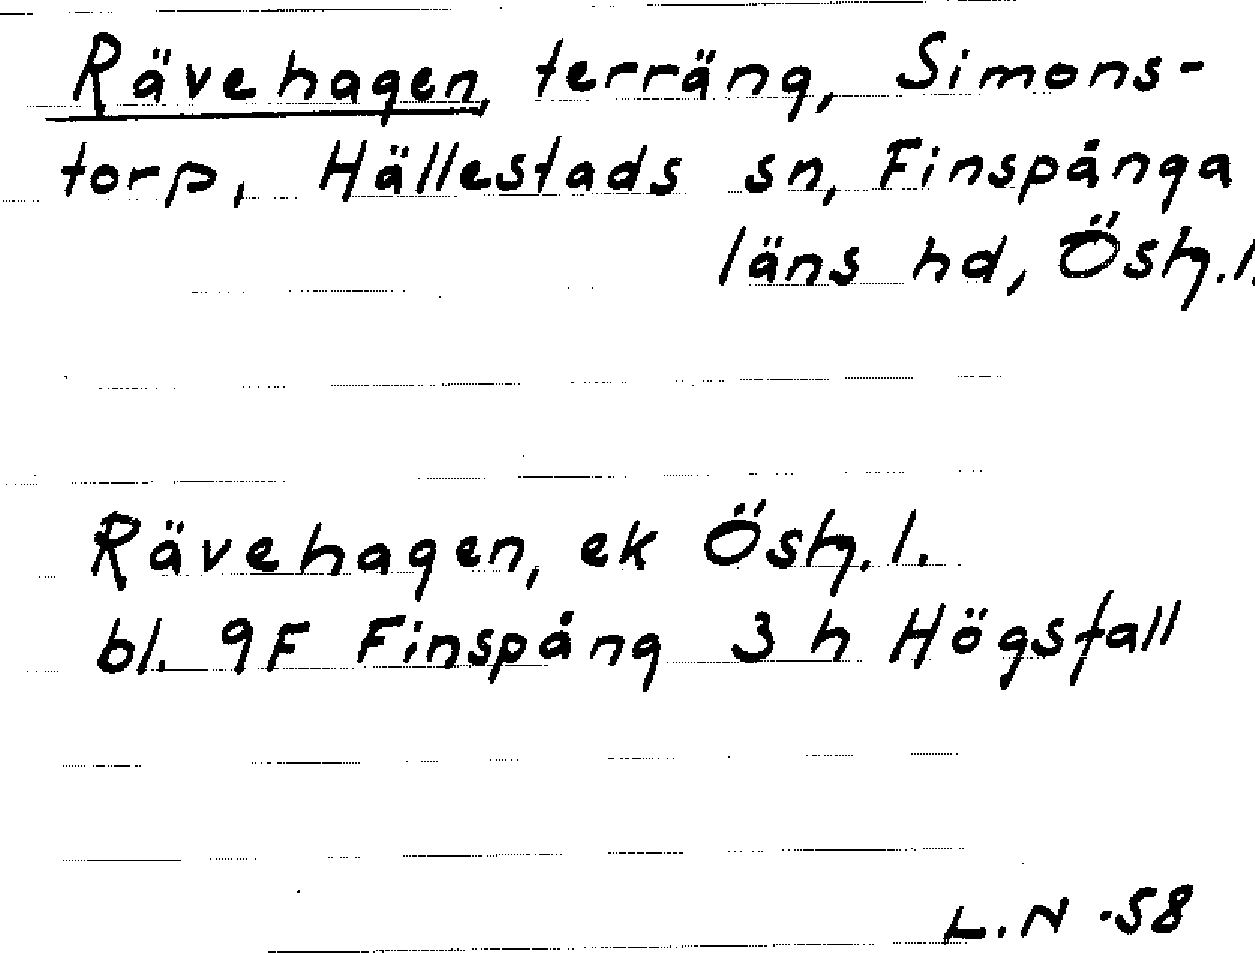 Rävehagen, terräng, Simons-
torp, Hällestads sn, Finspånga
läns hd, Östg.l.
Rävehagen, ek Östg.l.
bl. 9F Finspång 3 h Högsfall
L.N -58